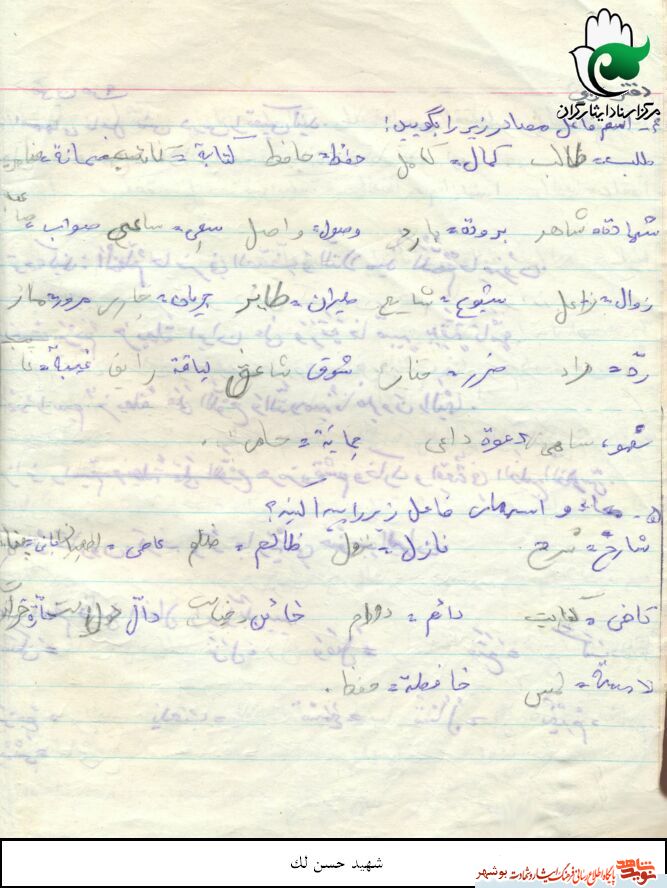 مرکز اسناد ایثارگران
۴- اسم فاعل مصادر زیر را بگویید؛
طلب = طالب کمال = کامل حفظ = حافظ کتابة = کاتب ضمانة =
شهادة = شاهد برودة = بارد وصول = واصل سعی = ساعی صواب =
زوال = زاعل شیوع = شایع طیران = طایر جریان = جاری مرور = مار
ردّ = راد ضرر = شوق شاعق لیاقة غیبة =
سهو = ساهی دعوة داعی حمایة =
۵- اسمهای فاعل زیر را پیدا کنید؟
شارح = شرح نازل = نزول ظالم = ظلم عاصی =
کافی = کفایت دائم = دوام خائن = خیانت دالّ
لامسة = لمس حافظة = حفظ.
شهید حسن لک
نوید شاهد
پایگاه اطلاع رسانی فرهنگ ایثار و شهادت بوشهر